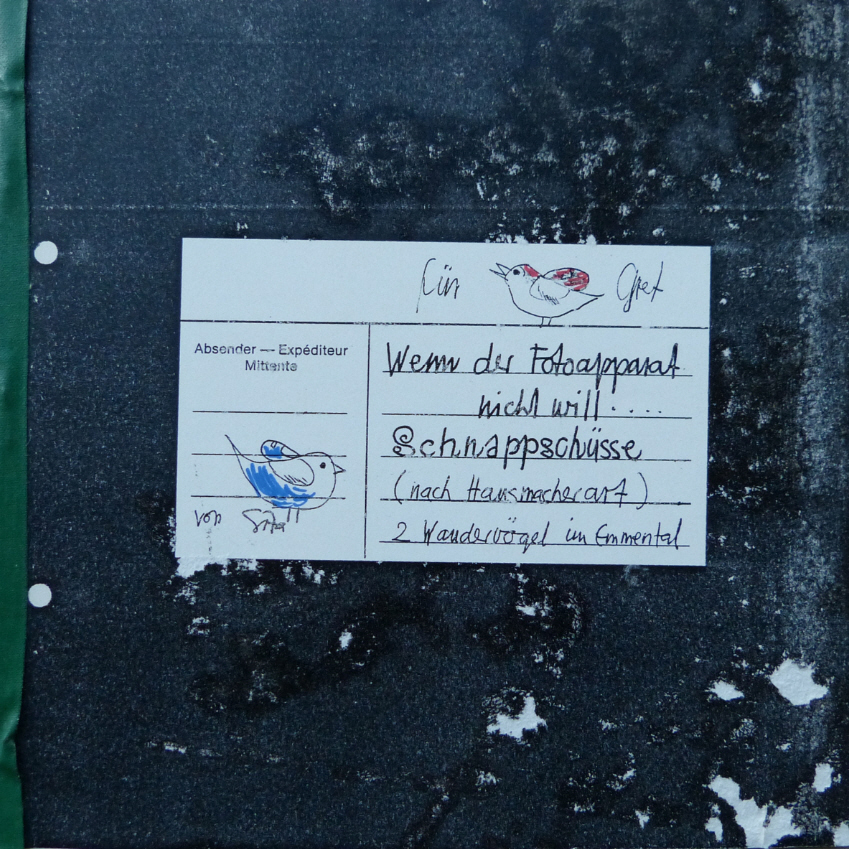 für Gret
Absender — Expéditeur
Mittente
von
Wenn der Fotoapparat
nicht will ....
Schnappschüsse
(nach Hausmacherart)
2 Wandervögel im Emmental